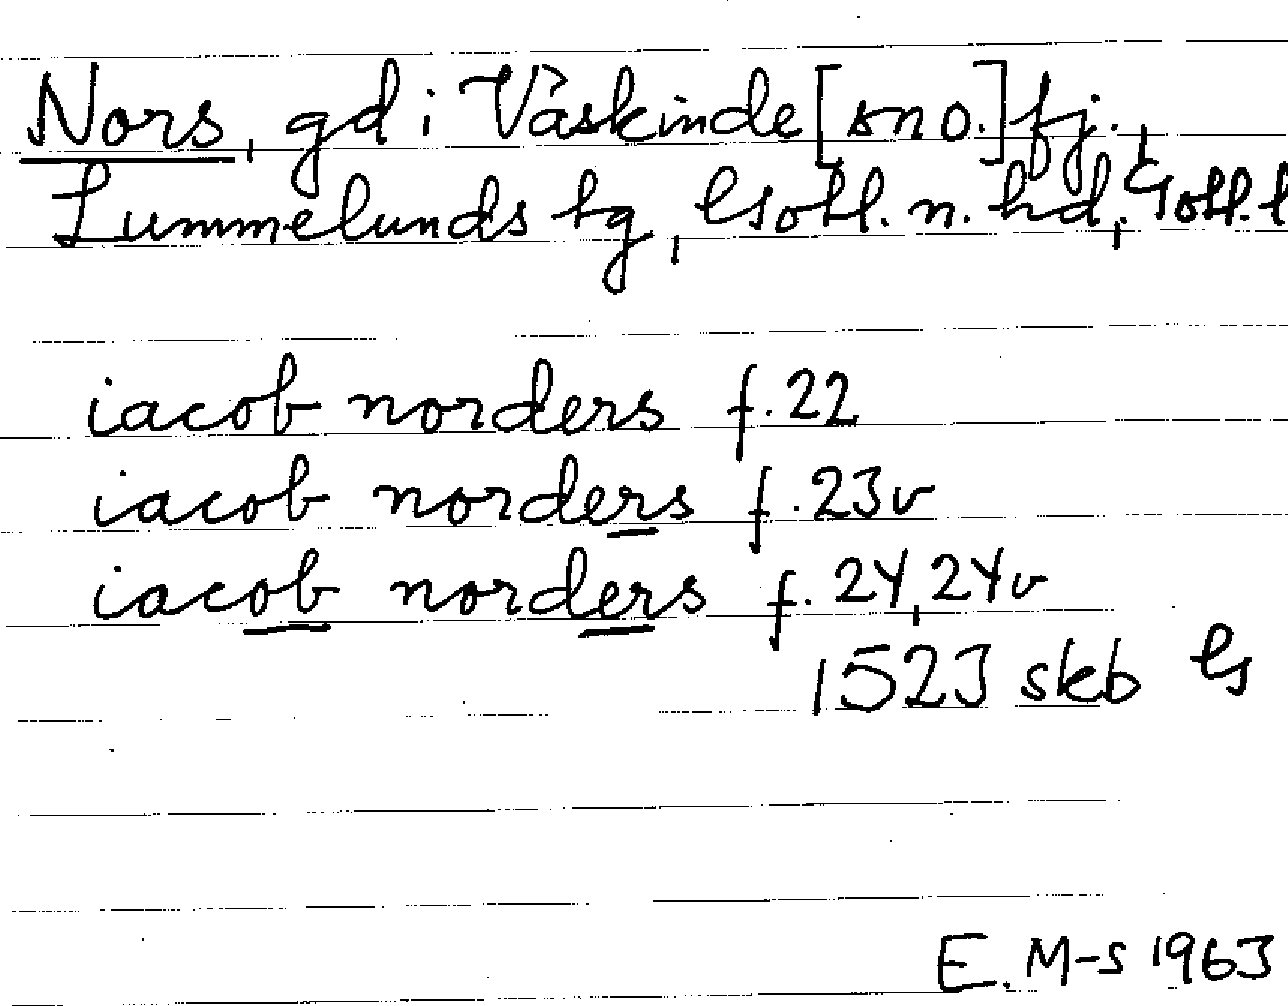 Nors, gd i Väskinde [sno.] fj.,
Lummelunds tg, Gotl. n. hd, Gotl. l
iacob norders f. 22
iacob norders f. 23v
iacob norders f. 24, 24v
1523 skb G
E. M-s 1963